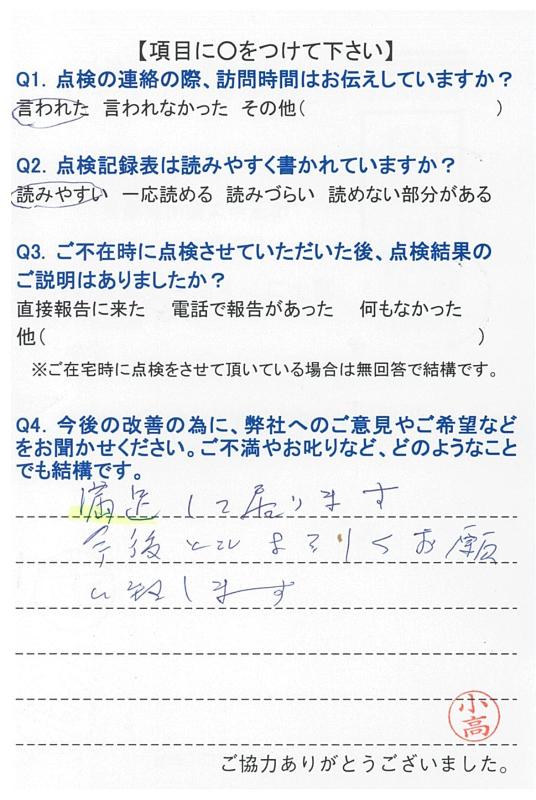 【項目に〇をつけて下さい】
Q1. 点検の連絡の際、訪問時間はお伝えしていますか？
言われた 言われなかった その他( )
Q2. 点検記録表は読みやすく書かれていますか？
読みやすい 一応読める 読みづらい 読めない部分がある
Q3. ご不在時に点検させていただいた後、点検結果の
ご説明はありましたか？
直接報告に来た 電話で報告があった 何もなかった
他( )
※ご在宅時に点検をさせて頂いている場合は無回答で結構です。
Q4. 今後の改善の為に、弊社へのご意見やご希望など
をお聞かせください。ご不満やお叱りなど、どのようなこと
でも結構です。
満足して居ります
今後ともよろしくお願
い致します
小高
ご協力ありがとうございました。